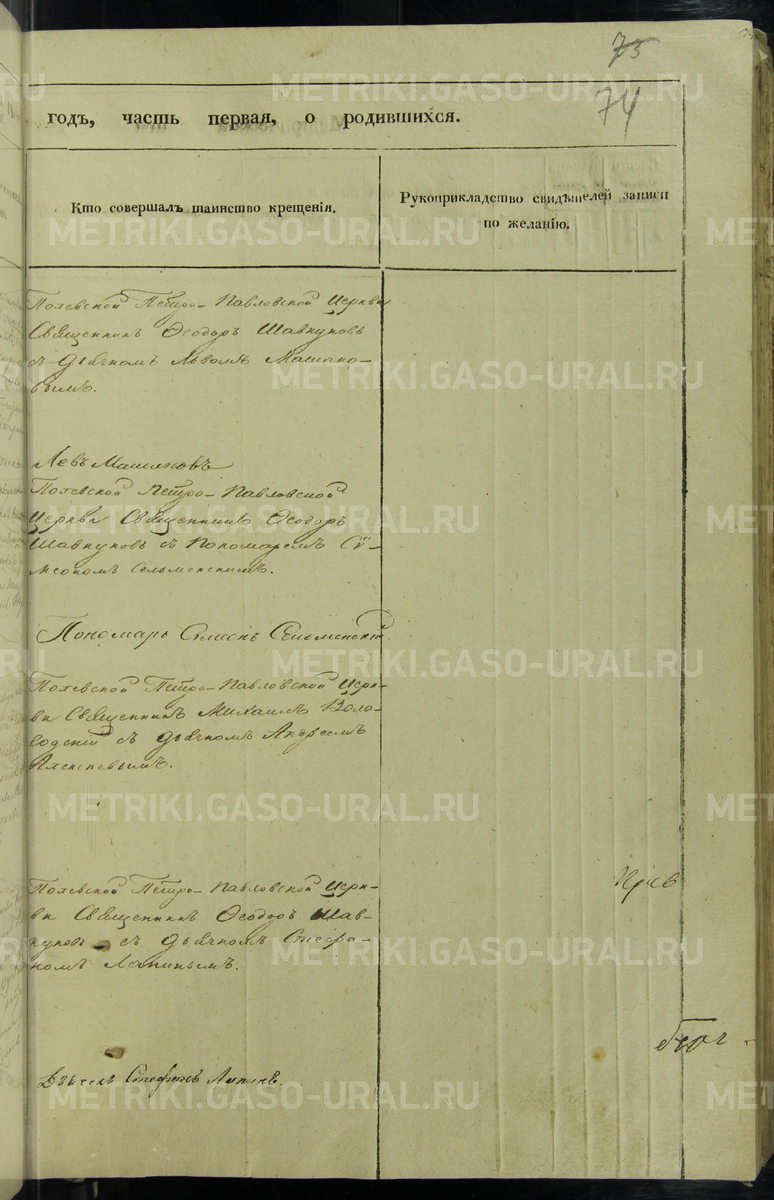 75
74
годъ, часть первая, о родившихся.
Кто совершалъ таинство крещенія.
Рукоприкладство свидѣтелей записи
по желанію.
Полевской Петро-Павловской Церкви
Священникъ Ѳеодоръ Шавкуновъ
съ дьячкомъ Львомъ Машано-
вымъ.
Левъ Машановъ
Полевской Петро-Павловской
Церкви Священникъ Ѳеодоръ
Шавкуновъ съ Пономаремъ Сѵ-
меономъ Сельменскимъ.
Пономарь Симеонъ Сельменский.
Полевской Петро-Павловской Церк-
ви Священникъ Михаилъ
съ дьячкомъ Андреемъ
Полевской Петро-Павловской Церк-
ви Священникъ Ѳеодоръ Шав-
куновъ съ дьячкомъ Стефа-
номъ Лапинымъ.
Дьячекъ Стефанъ Лапинъ.
METRIKI.GASO-URAL.RU